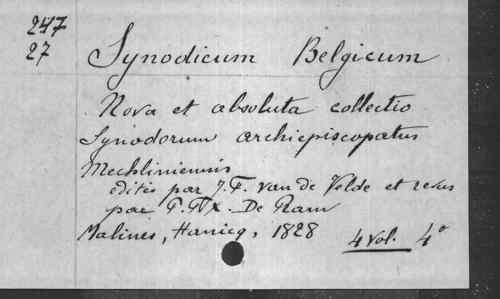 247
27
Synodicum Belgicum
Nova et absoluta collectio
Synodorum archiepiscopatus
Mechliniensis
édités par J.F. van de Velde et revus
par P.F.X. De Ram
Malines, Hanicq, 1828 4 vol. 4°